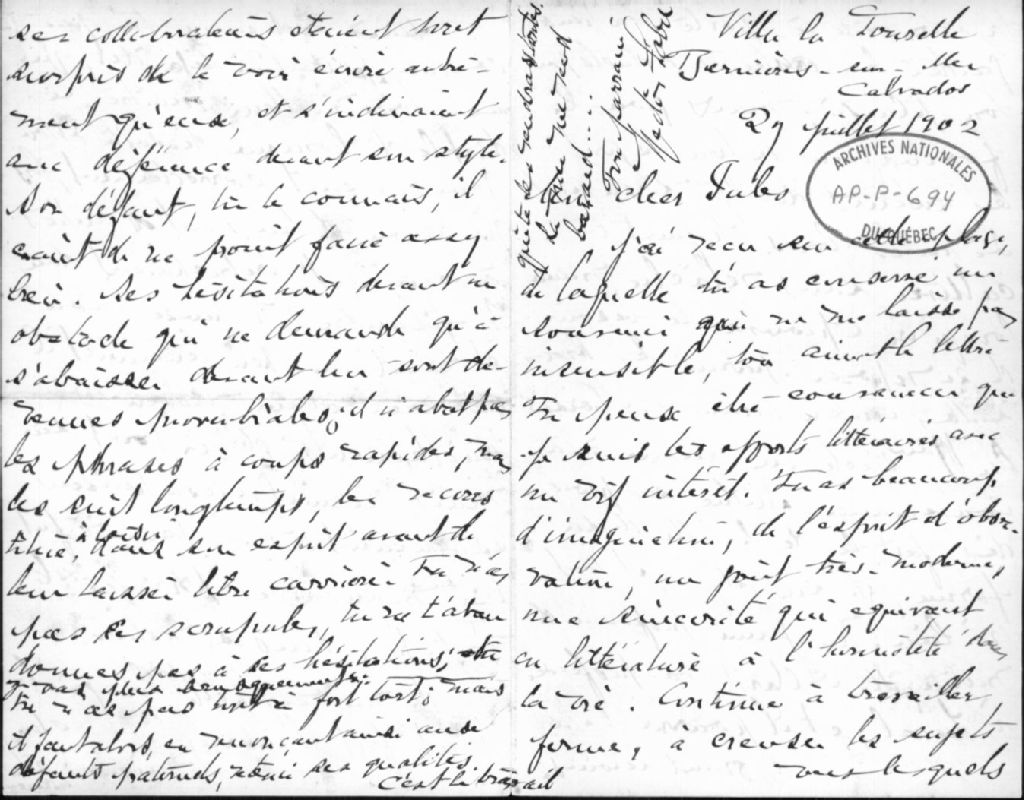 Villa la Tourelle
Bernières-sur-Mer
Calvados
27 juillet 1902
ARCHIVES NATIONALES
AP-P-694
DU QUÉBEC
Mon cher Jules
J'ai reçu sur cette plage,
de laquelle tu as conservé un
souvenir qui ne me laisse pas
insensible, ton aimable lettre
Tu peux être convaincu que
je suis tes efforts littéraires avec
un vif intérêt. Tu as beaucoup
d'imagination, de l'esprit d'obser-
vation, un goût très-moderne,
une sincérité qui équivaut
en littérature à l'honnêteté dans
la vie. Continue à travailler
ferme, à creuser les sujets
vers lesquels
ses collaborateurs étaient tout
surpris de le voir écrire autre-
ment qu'eux, et s'inclinaient
avec déférence devant son style.
Son défaut, tu le connais, il
était de ne point faire assez
bref. Ses hésitations devant un
obstacle qui ne demande qu'à
s'abaisser devant lui sont de-
venues proverbiales; il n'abat pas
les phrases à coups rapides, mais
les suit longtemps, les
à loisir dans son esprit avant de
leur laisser libre carrière. Tu n'as
pas ses scrupules, tu ne t'aban
donnes pas à ses hésitations;
tu vas plus
Tu n'as pas fort tort; mais
il faut alors, en renonçant ainsi aux
défauts paternels, ses qualités.
C'est le travail
qui te les rendra toutes.
Ton parrain
Hector Fabre